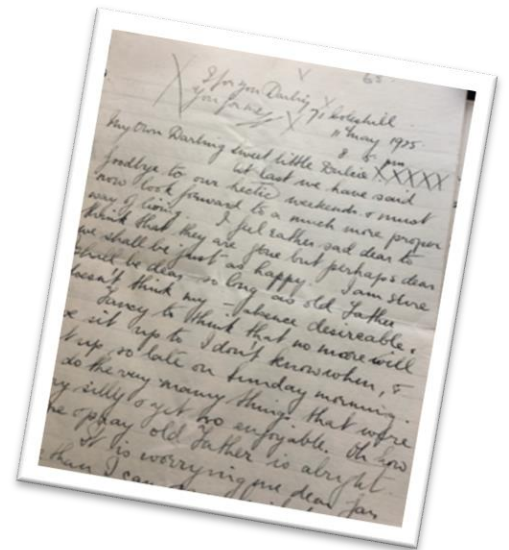 I for you Darling
You for me
Coleshill.
11th May 1925.
8.5. pm
My Own Darling Sweet little Darlie XXXXX
At last we have said
goodbye to our hectic weekends & must
now look forward to a much more proper
way of living. I feel rather sad dear to
think that they are gone but perhaps dear
we shall be just as happy. I am sure
shall be dear so long as old Father
doesn't think my absence desireable.
Fancy to think that no more will
sit up to I don't know when, &
up, so late on Sunday morning.
do the very many things that were
silly & yet so enjoyable. Oh how
& pray old Father is alright.
It is worrying me dear
than I can